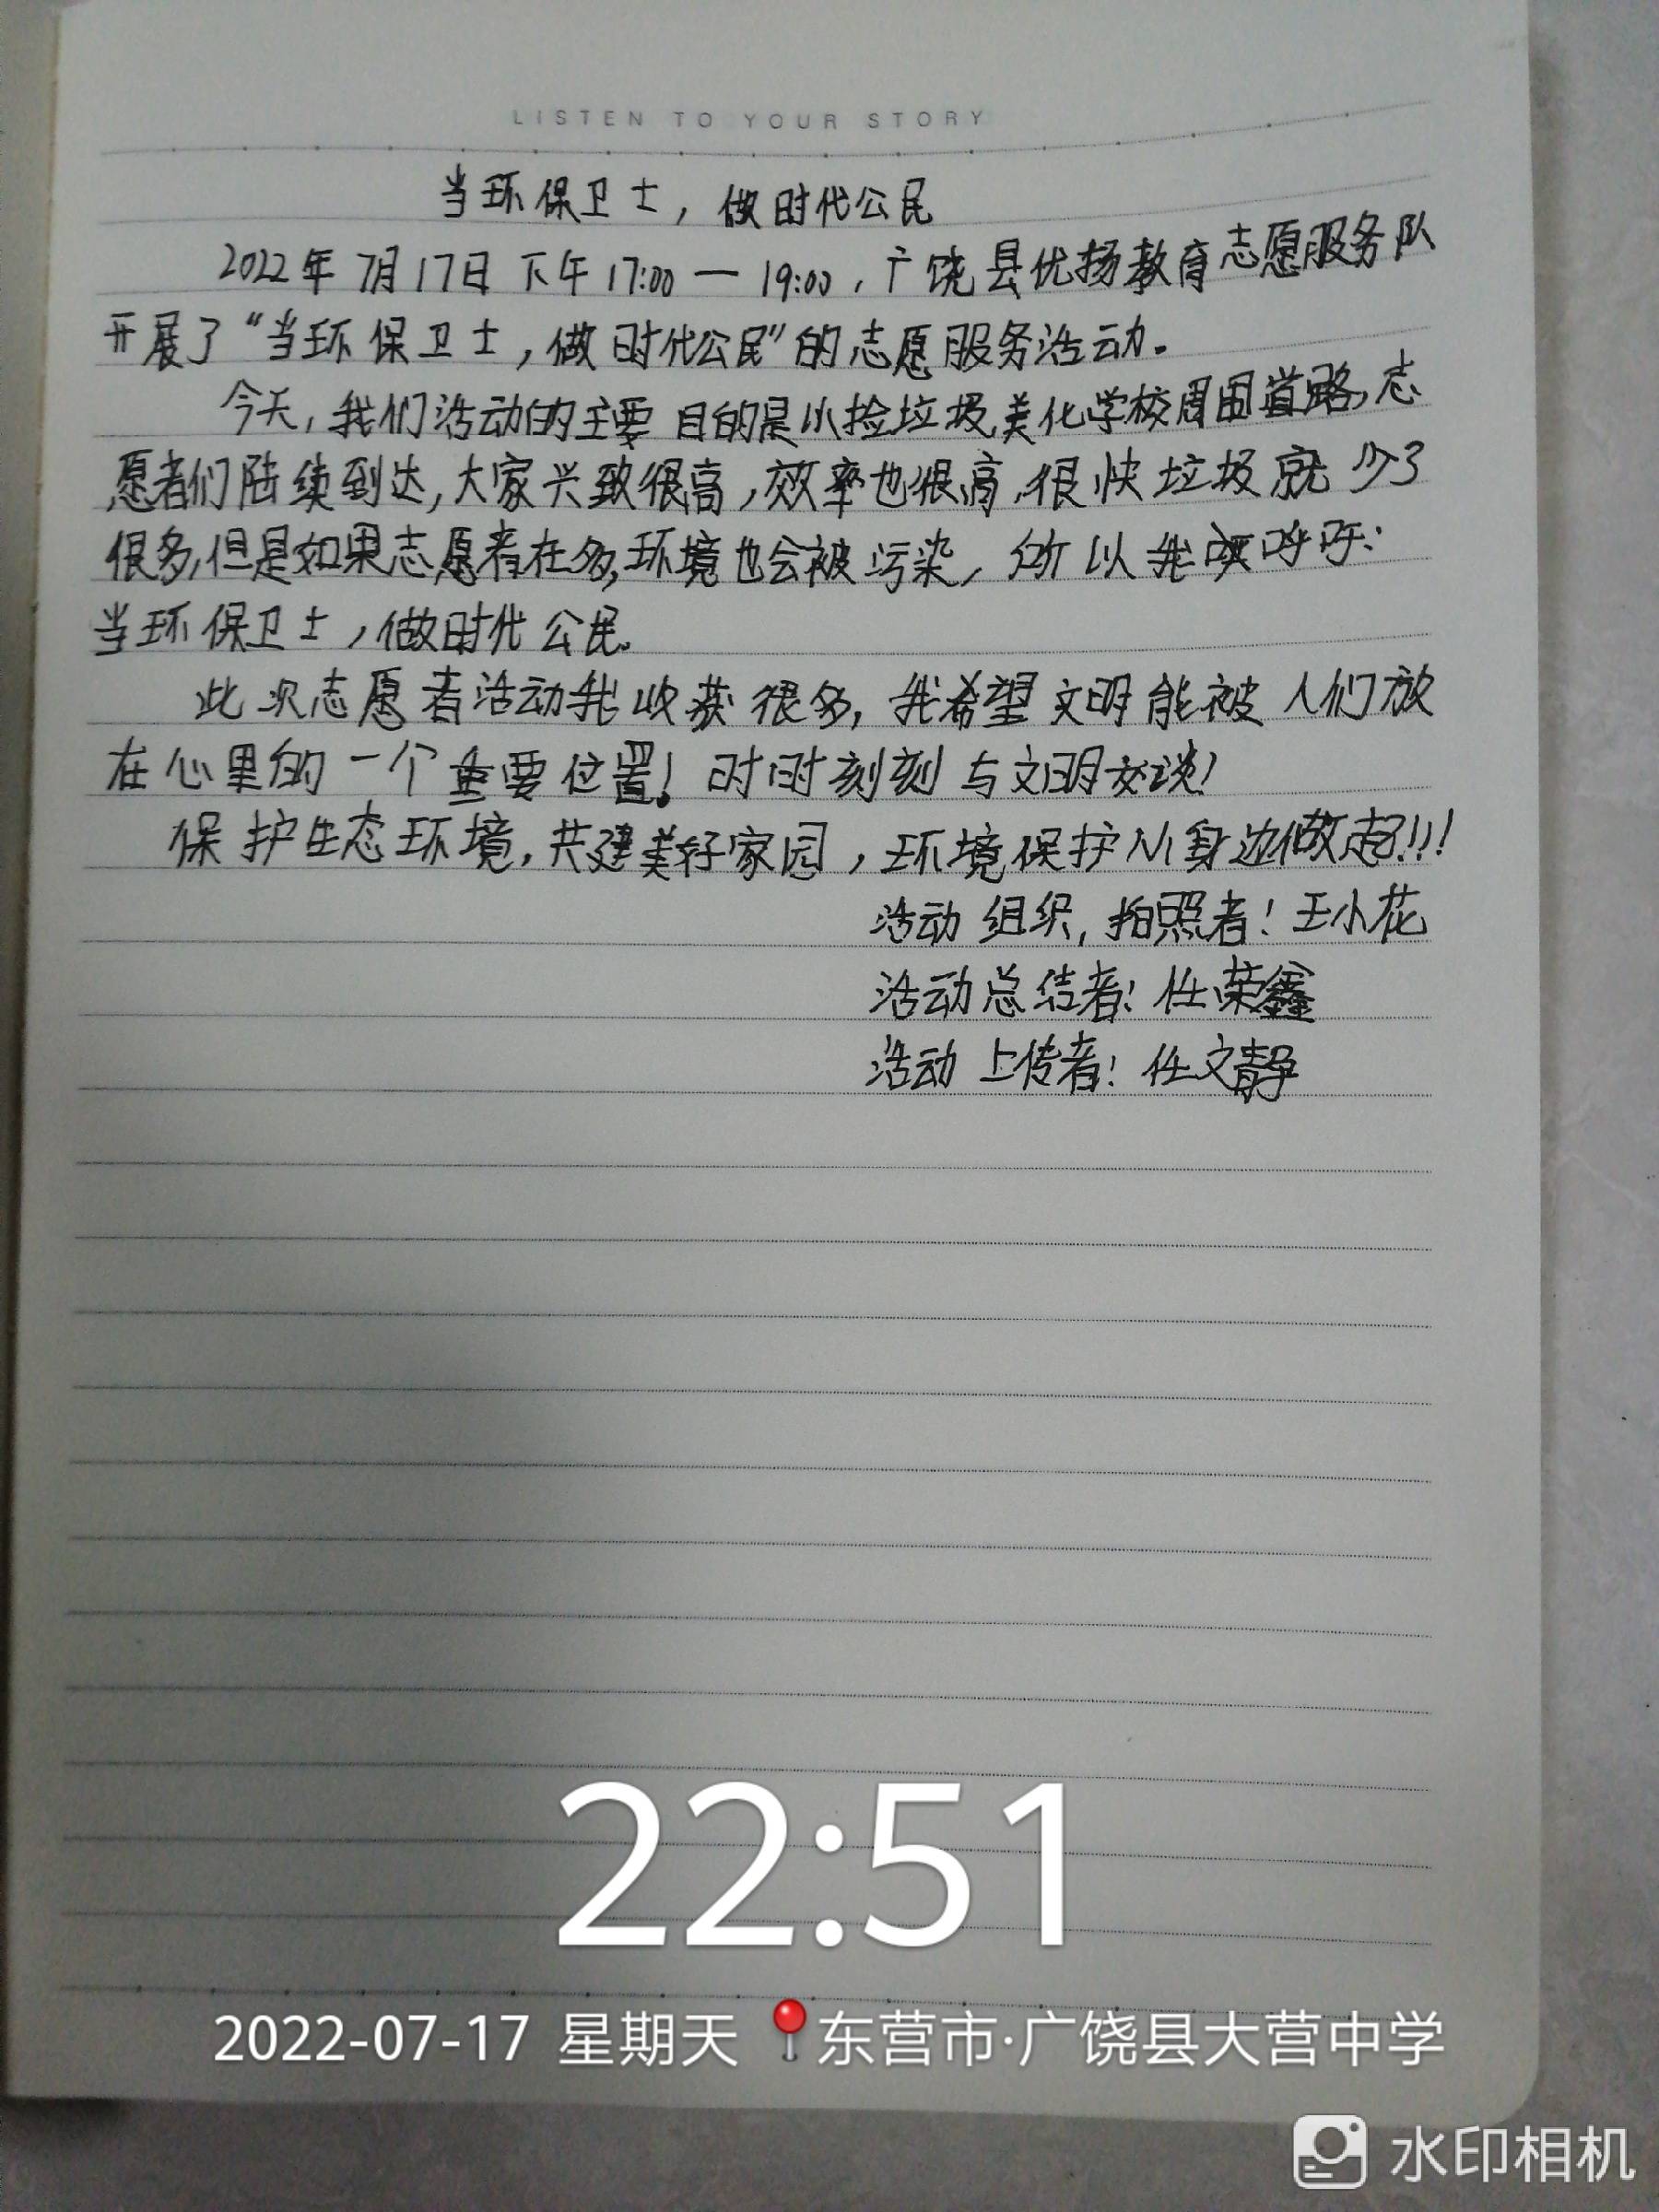 LISTEN TO YOUR STORY
当环保卫士，做时代公民
2022年7月17日下午17:00—19:00，广饶县优扬教育志愿服务队
开展了“当环保卫士，做时代公民”的志愿服务活动。
今天，我们活动的主要目的是以捡垃圾，美化学校周围道路，志
愿者们陆续到达，大家兴致很高，效率也很高，很快垃圾就少了
很多，但是如果志愿者在多，环境也会被污染，所以我 呼吁：
当环保卫士，做时代公民。
此次志愿者活动我收获很多，我希望文明能被人们放
在心里的一个重要位置！时时刻刻与文明交谈！
保护生态环境，共建美好家园，环境保护从身边做起!!!
活动组织，拍照者：王小花
活动总结者：任荣鑫
活动上传者：任文静
22:51
2022-07-17 星期天 东营市·广饶县大营中学
水印相机